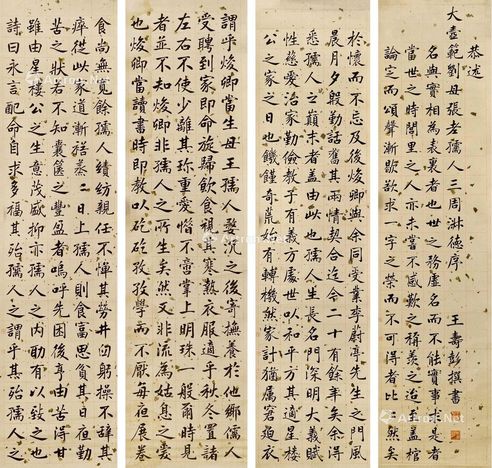 恭述
大壼範劉母張老孺人三周淋德序 王壽彭撰書
名與實相為表裏者也世之務虛名而不能實事求是者
當世之時閭里之人亦未嘗不感歎之稱羨之迨至蓋棺
論定而頌聲漸歇欲求一字之榮而不可得者比比然矣
於懷而不忘及後煥卿與余同受業李蔚亭先生之門風
晨月夕殷勤話舊其兩情契合迄今二十有餘年矣余得
悉孺人之巔末者蓋由此也孺人生長名門深明大義賦
性慈愛治家勤儉教子有義方處世以和平方其適星樓
公之家之日也饑饉奇荒殆有轉機然家計猶屬窘迫衣
謂乎煥卿當生母王孺人婺沉之後寄撫養於他鄉儒人
受聘到家即命旋歸飲食視寒熱衣服適乎秋冬置諸
左右不使少離其珍重愛惜不啻掌上明珠一般爾時見
者並不知煥卿非孺人之所生矣然又非流為姑息之愛
也煥卿當讀書時即教以矻矻孜孜學而不厭每夜展卷
食尚無覓餘孺人績紡親任不憚其勞井臼躬操不辭其
瘁從此家道漸蒸二日上孺人則食富思貧其日夜勤
苦之狀若不知囊篋之豐盈者嗚呼先困後亨由苦得甘
雖由星樓公之生意茂盛抑亦孺人之內助有以致之也
詩曰永言配命自求多福其殆孺人之謂乎其殆孺人之